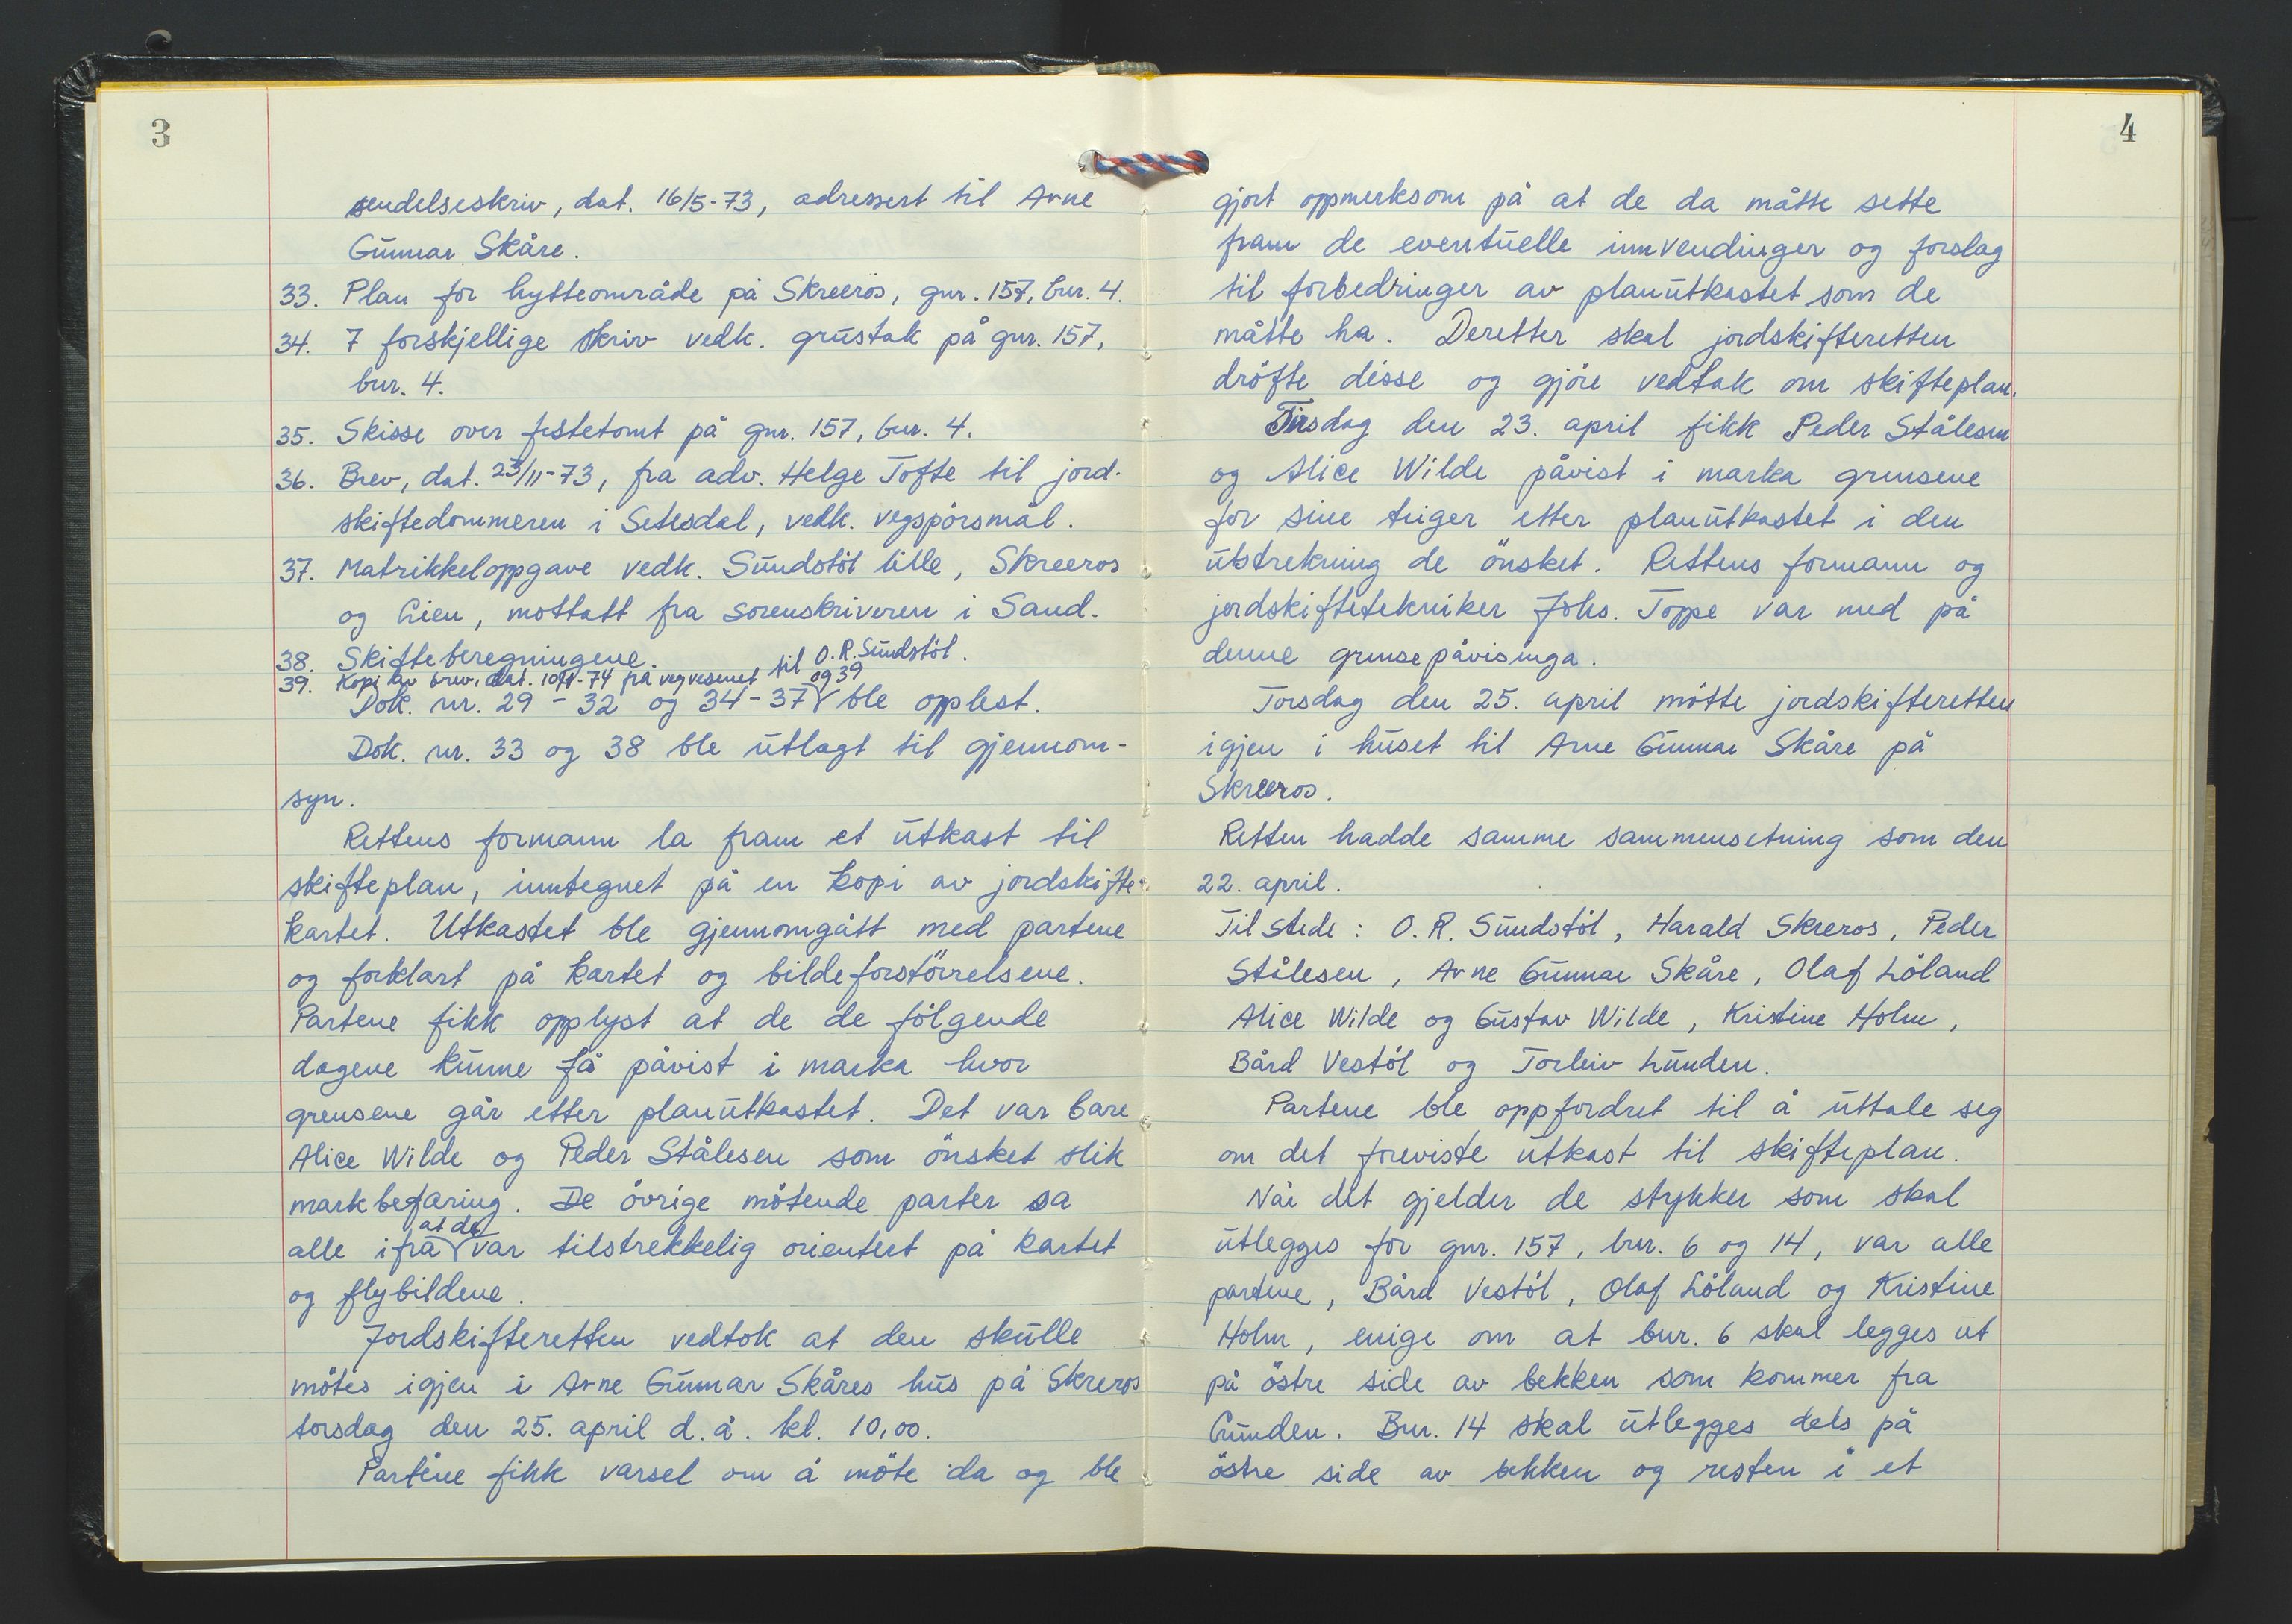 3
sendelseskriv, dat. 16/5-73, adressert til Arne
Gunnar Skåre.
33. Plan for hytteområde på Skreros, gnr. 157, bnr. 4.
34. 7 forskjellige skriv vedk. grustak på gnr. 157,
bnr. 4.
35. Skisse over festetomt på gnr. 157, bnr. 4.
36. Brev, dat. 23/11-73, fra adv. Helge Tofte til jord-
skiftedommeren i Setesdal, vedk. vegspörsmål.
37. Matrikkeloppgave vedk. Sundstöl lille, Skreros
og Lien, mottatt fra sorenskriveren i Sand.
38. Skifteberegningene.
39. Kopi av brev, dat. fra vegvesenet til O.R. Sundstöl.
Dok. nr. 29 - 32 og 34-37 og 39 ble opplest.
Dok. nr. 33 og 38 ble utlagt til gjennom-
syn.
Rettens formann la fram et utkast til
skifteplan, inntegnet på en kopi av jordskifte-
kartet. Utkastet ble gjennomgått med partene
og forklart på kartet og bildeforstörrelsene.
Partene fikk opplyst at de de fölgende
dagene kunne få påvist i marka hvor
grensene går etter planutkastet. Det var bare
Alice Wilde og Peder Stålesen som önsket slik
markbefaring. De övrige mötende parter sa
alle ifra at de var tilstrekkelig orientert på kartet
og flybildene.
Jordskifteretten vedtok at den skulle
mötes igjen i Arne Gunnar Skåres hus på Skreros
torsdag den 25. april d.å. kl. 10,00.
Partene fikk varsel om å möte da og ble
4
gjort oppmerksom på at de da måtte sette
fram de eventuelle innvendinger og forslag
til forbedringer av planutkastet som de
måtte ha. Deretter skal jordskifteretten
dröfte disse og gjöre vedtak om skifteplan.
Tirsdag den 23. april fikk Peder Stålesen
og Alice Wilde påvist i marka grensene
for sine teiger etter planutkastet i den
utstrekning de önsket. Rettens formann og
jordskiftetekniker Johs. Toppe var med på
denne grensepåvisinga.
Torsdag den 25. april mötte jordskifteretten
igjen i huset til Arne Gunnar Skåre på
Skreros.
Retten hadde samme sammensetning som den
22. april.
Til stede: O.R. Sundstöl, Harald Skreros, Peder
Stålesen, Arne Gunnar Skåre, Olaf Löland
Alice Wilde og Gustav Wilde, Kristine Holm,
Bård Vestöl og Torleiv Lunden.
Partene ble oppfordret til å uttale seg
om det foreviste utkast til skifteplan.
Når det gjelder de stykker som skal
utlegges for gnr. 157, bnr. 6 og 14, var alle
partene, Bård Vestöl, Olaf Löland og Kristine
Holm, enige om at bnr. 6 skal legges ut
på östre side av bekken som kommer fra
Lunden. Bnr. 14 skal utlegges dels på
östre side av bekken og resten i et